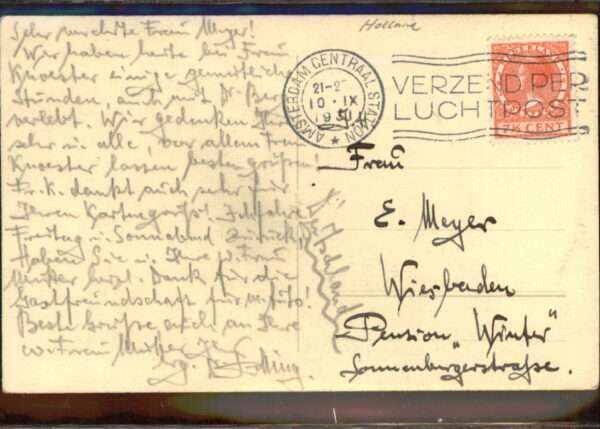 Sehr verehrte Frau Meyer!
Wir haben heute bei Frau
Knoester einige gemütliche
Stunden, auch mit Dr. Ber
verlebt. Wir gedenken Ihrer
sehr in alle, vor allem Frau
Knoester lassen bestens grüßen!
Fr. K. dankt auch sehr für
Ihren Kartengruß!
Freitag u. Sonnabend zurück
Haben Sie u. Ihre w. Frau
Mutter herzl. Dank für die
Gastfreundschaft für m. Auto!
Beste Grüße auch an Ihre
w. Frau Mutter Ihr
erg.
Holland
AMSTERDAM CENTRAAL STATION
21-2
10 IX
1931
VERZEND PER
LUCHTPOST
7½ CENT
Frau
E. Meyer
Wiesbaden
Pension „Winter"
Sonnenburgerstraße.
Deutschland